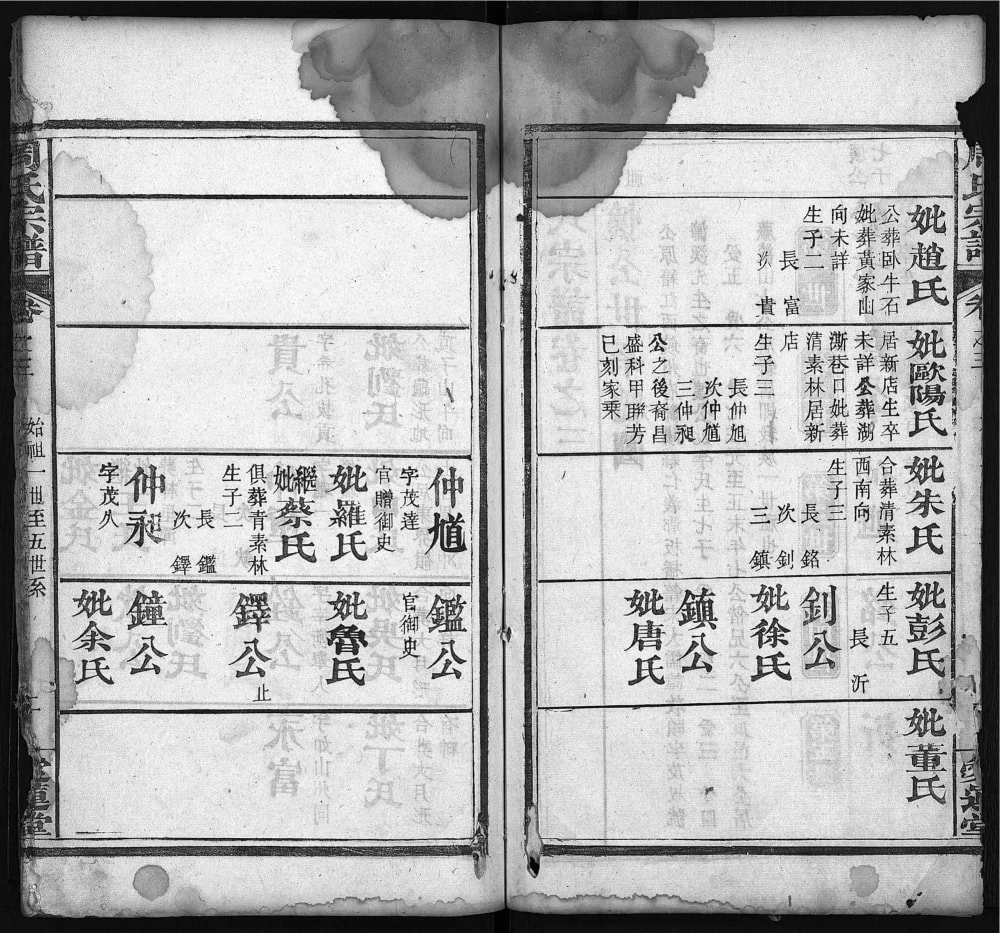 妣趙氏
公葬卧牛石
妣葬黃家山
向未詳
生子二
長富
次貴
妣歐陽氏
居新店生卒
未詳公葬湖
漸巷口妣葬
清素林居新
店
生子三
長仲旭
次仲馗
三仲昶
公之後裔昌
盛科甲聯芳
已刻家乘
妣朱氏
合葬清素林
西南向
生子三
長銘
次釗
三鎮
妣彭氏
生子五
長沂
釗公
妣徐氏
鎮公
妣唐氏
妣董氏
仲馗
字茂達
官贈御史
妣羅氏
繼妣蔡氏
俱葬青素林
生子二
長鑑
次鐸
仲永
字茂久
鑑公
官御史
妣魯氏
鐸公
止
鐘公
妣余氏
周氏宗譜
卷之三
始祖一世至五世系